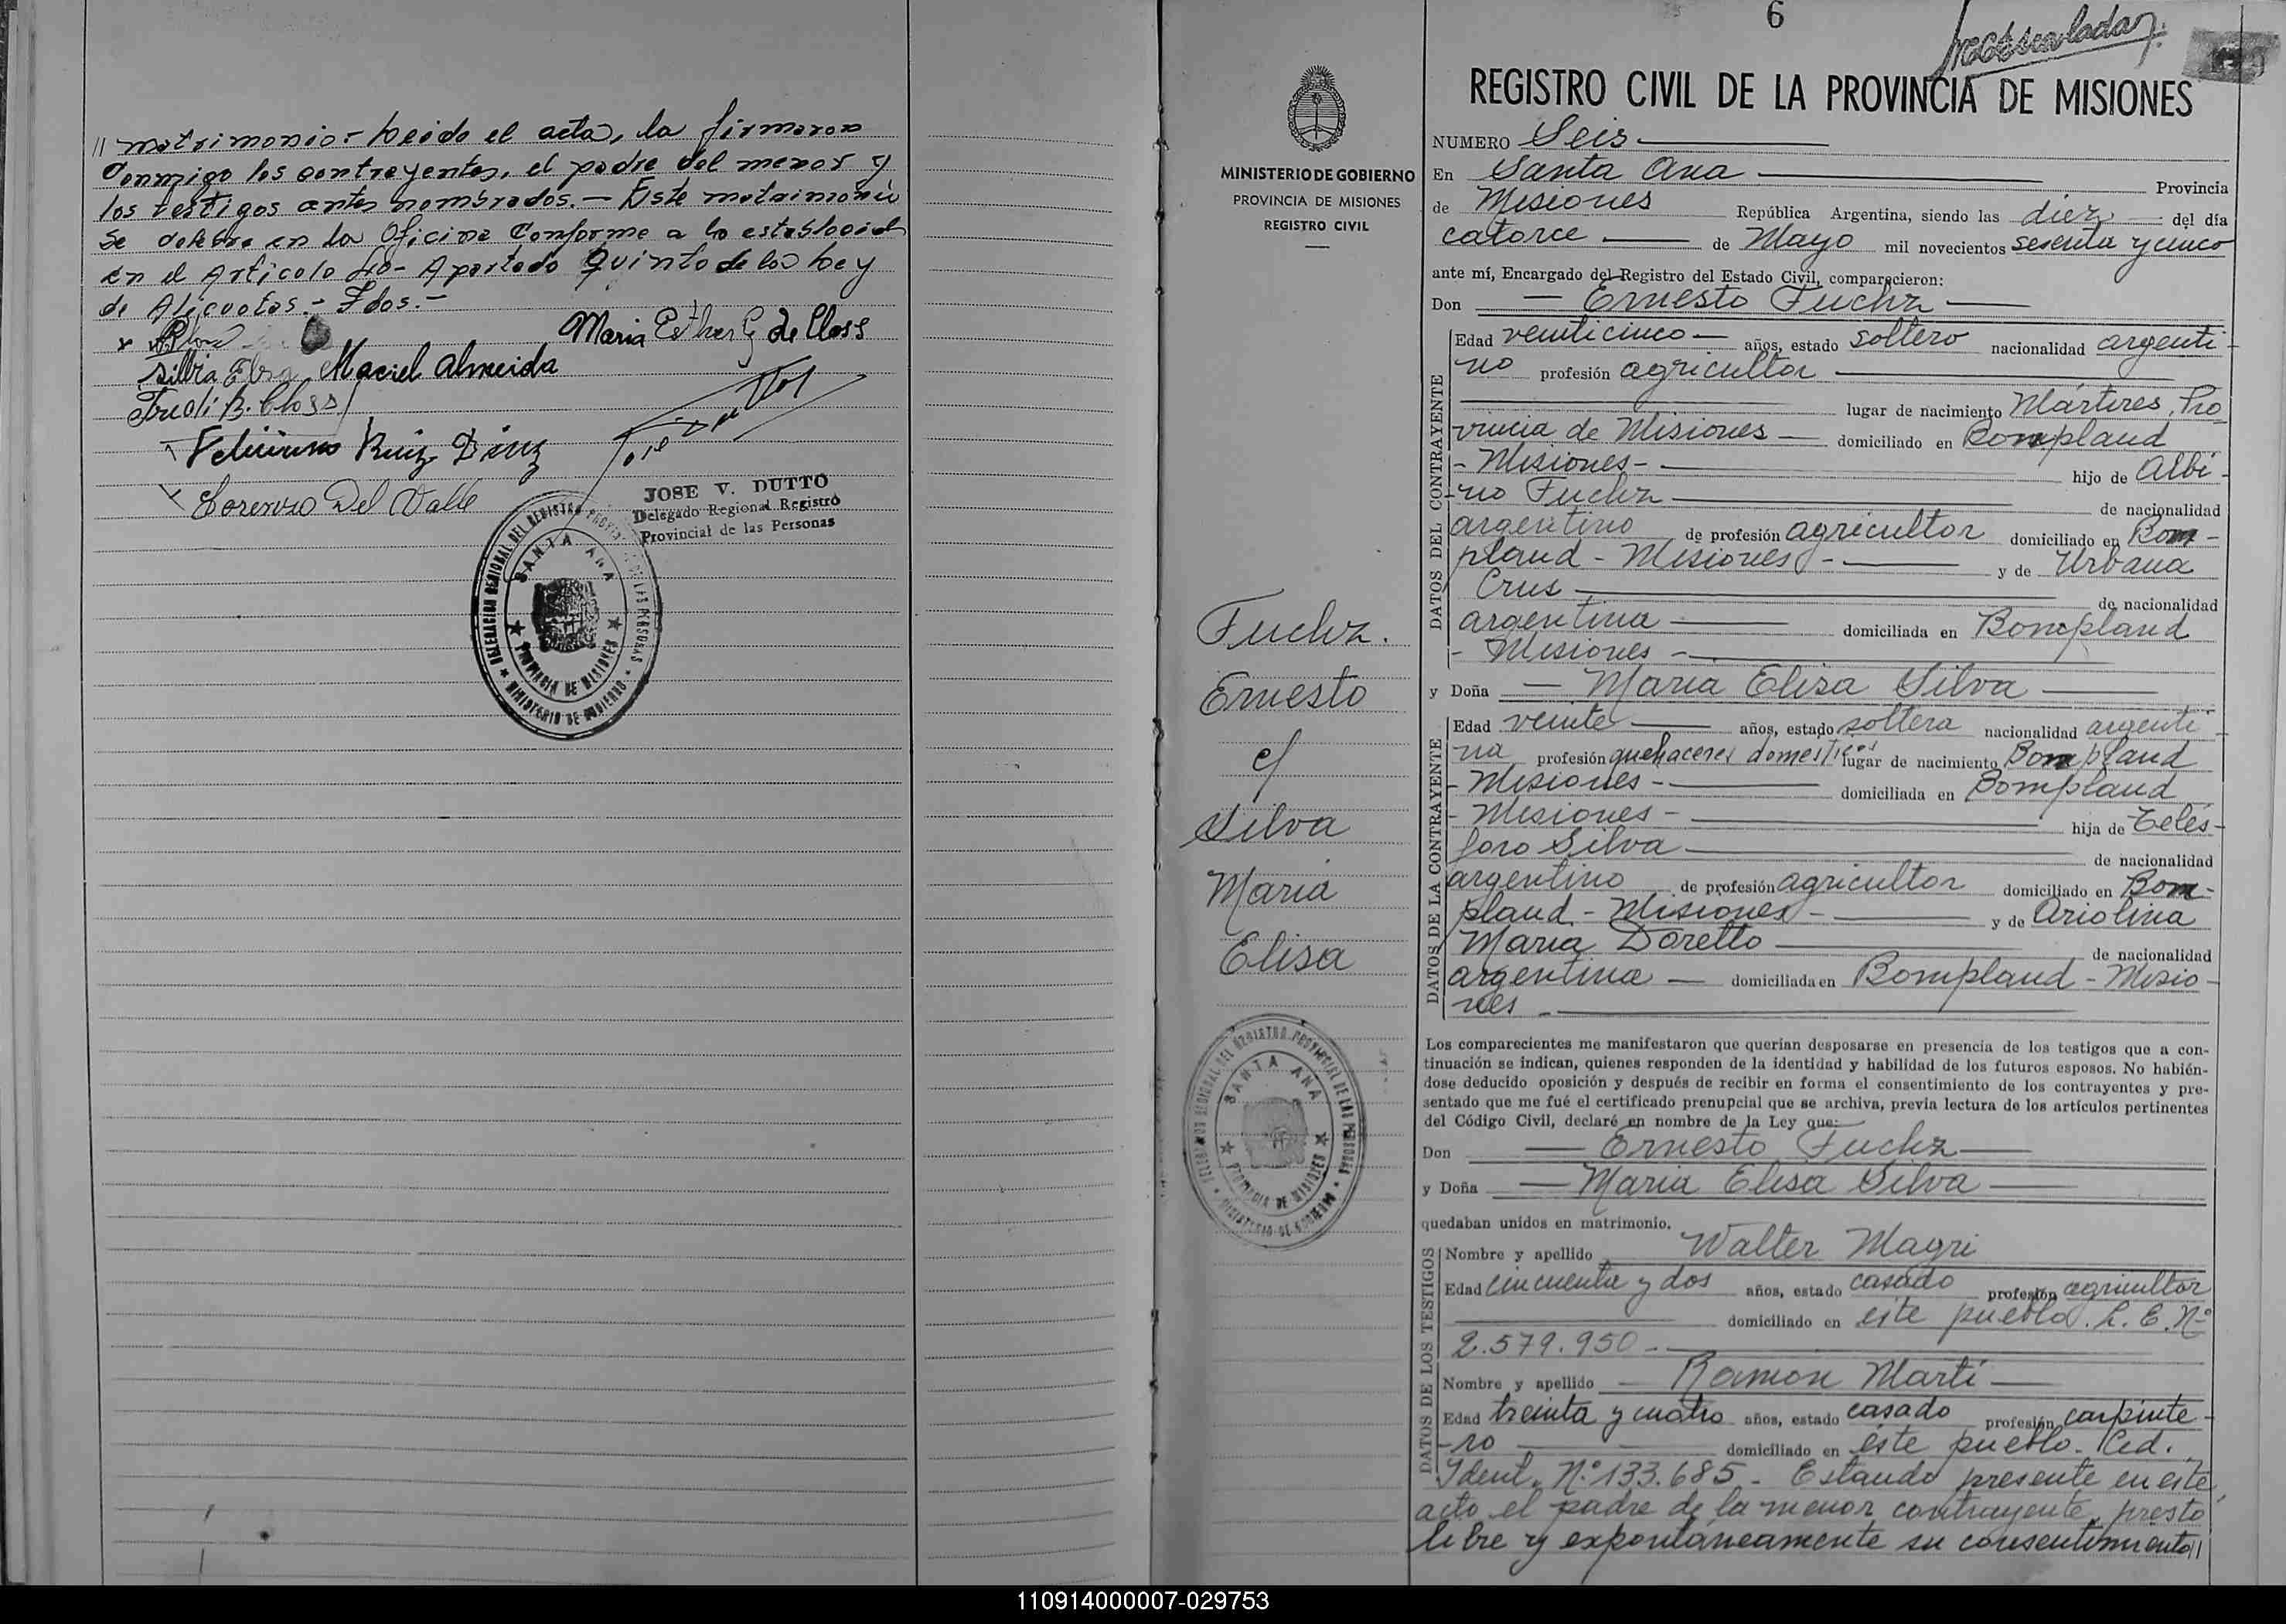 // matrimonio.- Leido el acta, la firmaron
conmigo los contrayentes, el padre del menor y
los testigos antes nombrados.- Este matrimonio
se celebra en la Oficina Conforme a lo establecido
en el Articolo 40- Apartado Quinto de la Ley
de Alicuotas.- Fdos.-
Maria Esther G de Closs
Silvia Elsa Maciel Almeida
Frudi B. Closs
Feliciano Ruiz Diaz
Lorenzo Del Valle
JOSE V. DUTTO
Delegado Regional Registro
Provincial de las Personas
DELEGACION REGIONAL DEL REGISTRO PROVINCIAL DE LAS PERSONAS
SANTA ANA
PROVINCIA DE MISIONES
MINISTERIO DE GOBIERNO
6
REGISTRO CIVIL DE LA PROVINCIA DE MISIONES
MINISTERIO DE GOBIERNO
PROVINCIA DE MISIONES
REGISTRO CIVIL
Fuchz.
Ernesto
c/
Silva
Maria
Elisa
DELEGACION REGIONAL DEL REGISTRO PROVINCIAL DE LAS PERSONAS
SANTA ANA
PROVINCIA DE MISIONES
MINISTERIO DE GOBIERNO
NUMERO Seis
En Santa Ana Provincia
de Misiones República Argentina, siendo las diez del día
catorce de Mayo mil novecientos sesenta y cinco
ante mí, Encargado del Registro del Estado Civil, comparecieron:
Don Ernesto Fuchz
DATOS DEL CONTRAYENTE
Edad veinticinco años, estado soltero nacionalidad argenti-
no profesión agricultor
lugar de nacimiento Mártires, Pro
vincia de Misiones domiciliado en Bompland
- Misiones - hijo de Albi-
no Fuchz de nacionalidad
argentino de profesión agricultor domiciliado en Bom-
pland - Misiones - y de Urbana
Crus de nacionalidad
argentina domiciliada en Bompland
- Misiones -
y Doña Maria Elisa Silva
DATOS DE LA CONTRAYENTE
Edad veinte años, estado soltera nacionalidad argenti-
na profesión quehaceres domesticos lugar de nacimiento Bompland
- Misiones - domiciliada en Bompland
- Misiones - hija de Teles-
foro Silva de nacionalidad
argentino de profesión agricultor domiciliado en Bom-
pland - Misiones - y de Ariolina
Maria Dorello de nacionalidad
argentina domiciliada en Bompland - Misio-
nes -
Los comparecientes me manifestaron que querían desposarse en presencia de los testigos que a con-
tinuación se indican, quienes responden de la identidad y habilidad de los futuros esposos. No habién-
dose deducido oposición y después de recibir en forma el consentimiento de los contrayentes y pre-
sentado que me fué el certificado prenupcial que se archiva, previa lectura de los artículos pertinentes
del Código Civil, declaré en nombre de la Ley que:
Don Ernesto Fuchz
y Doña Maria Elisa Silva
quedaban unidos en matrimonio.
DATOS DE LOS TESTIGOS
Nombre y apellido Walter Magri
Edad cincuenta y dos años, estado casado profesión agricultor
domiciliado en este pueblo. L. E. Nº
2.579.950 -
Nombre y apellido Ramon Marti
Edad treinta y cuatro años, estado casado profesión carpinte-
ro domiciliado en este pueblo - Ced.
Ident. Nº 133.685 - Estando presente en este
acto el padre de la menor contrayente, presto
libre y expontaneamente su consentimiento //
110914000007-029753